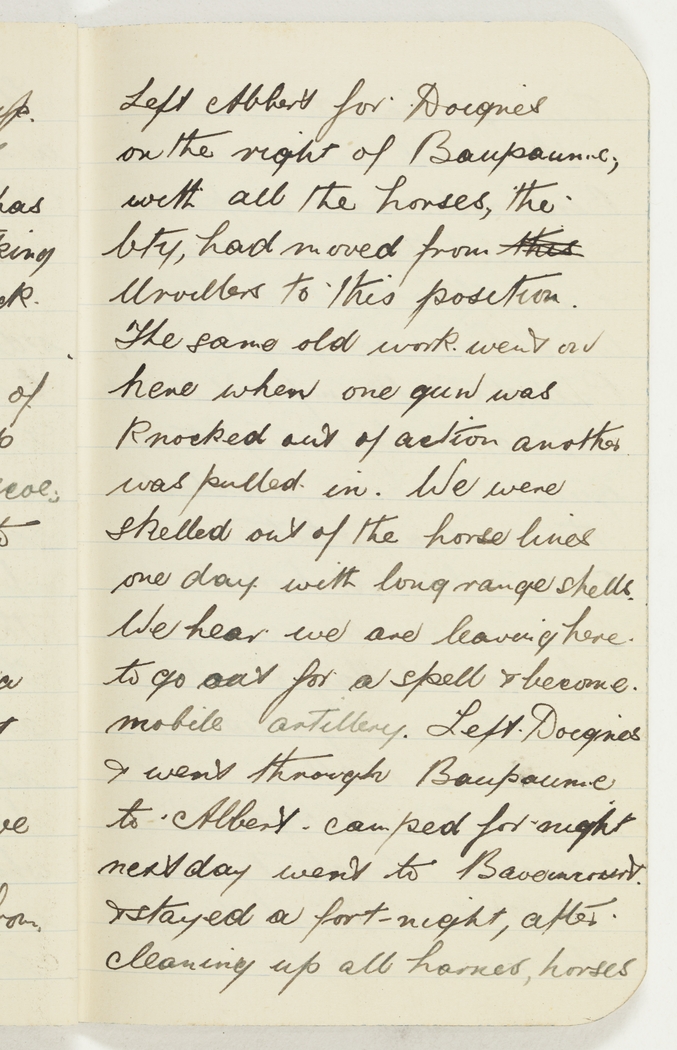 Left Albert for Doignies
on the right of Baupaume,
with all the horses, the
bty, had moved from this
to this position.
The same old work went on
here when one gun was
knocked out of action another
was pulled in. We were
shelled out of the horse lines
one day with long range shells.
We hear we are leaving here
to go out for a spell & become
mobile artillery. Left Doignies
& went through Baupaume
to Albert. camped for night
next day went to
& stayed a fort-night, after
cleaning up all harnes, horses
has
king
ck.
of